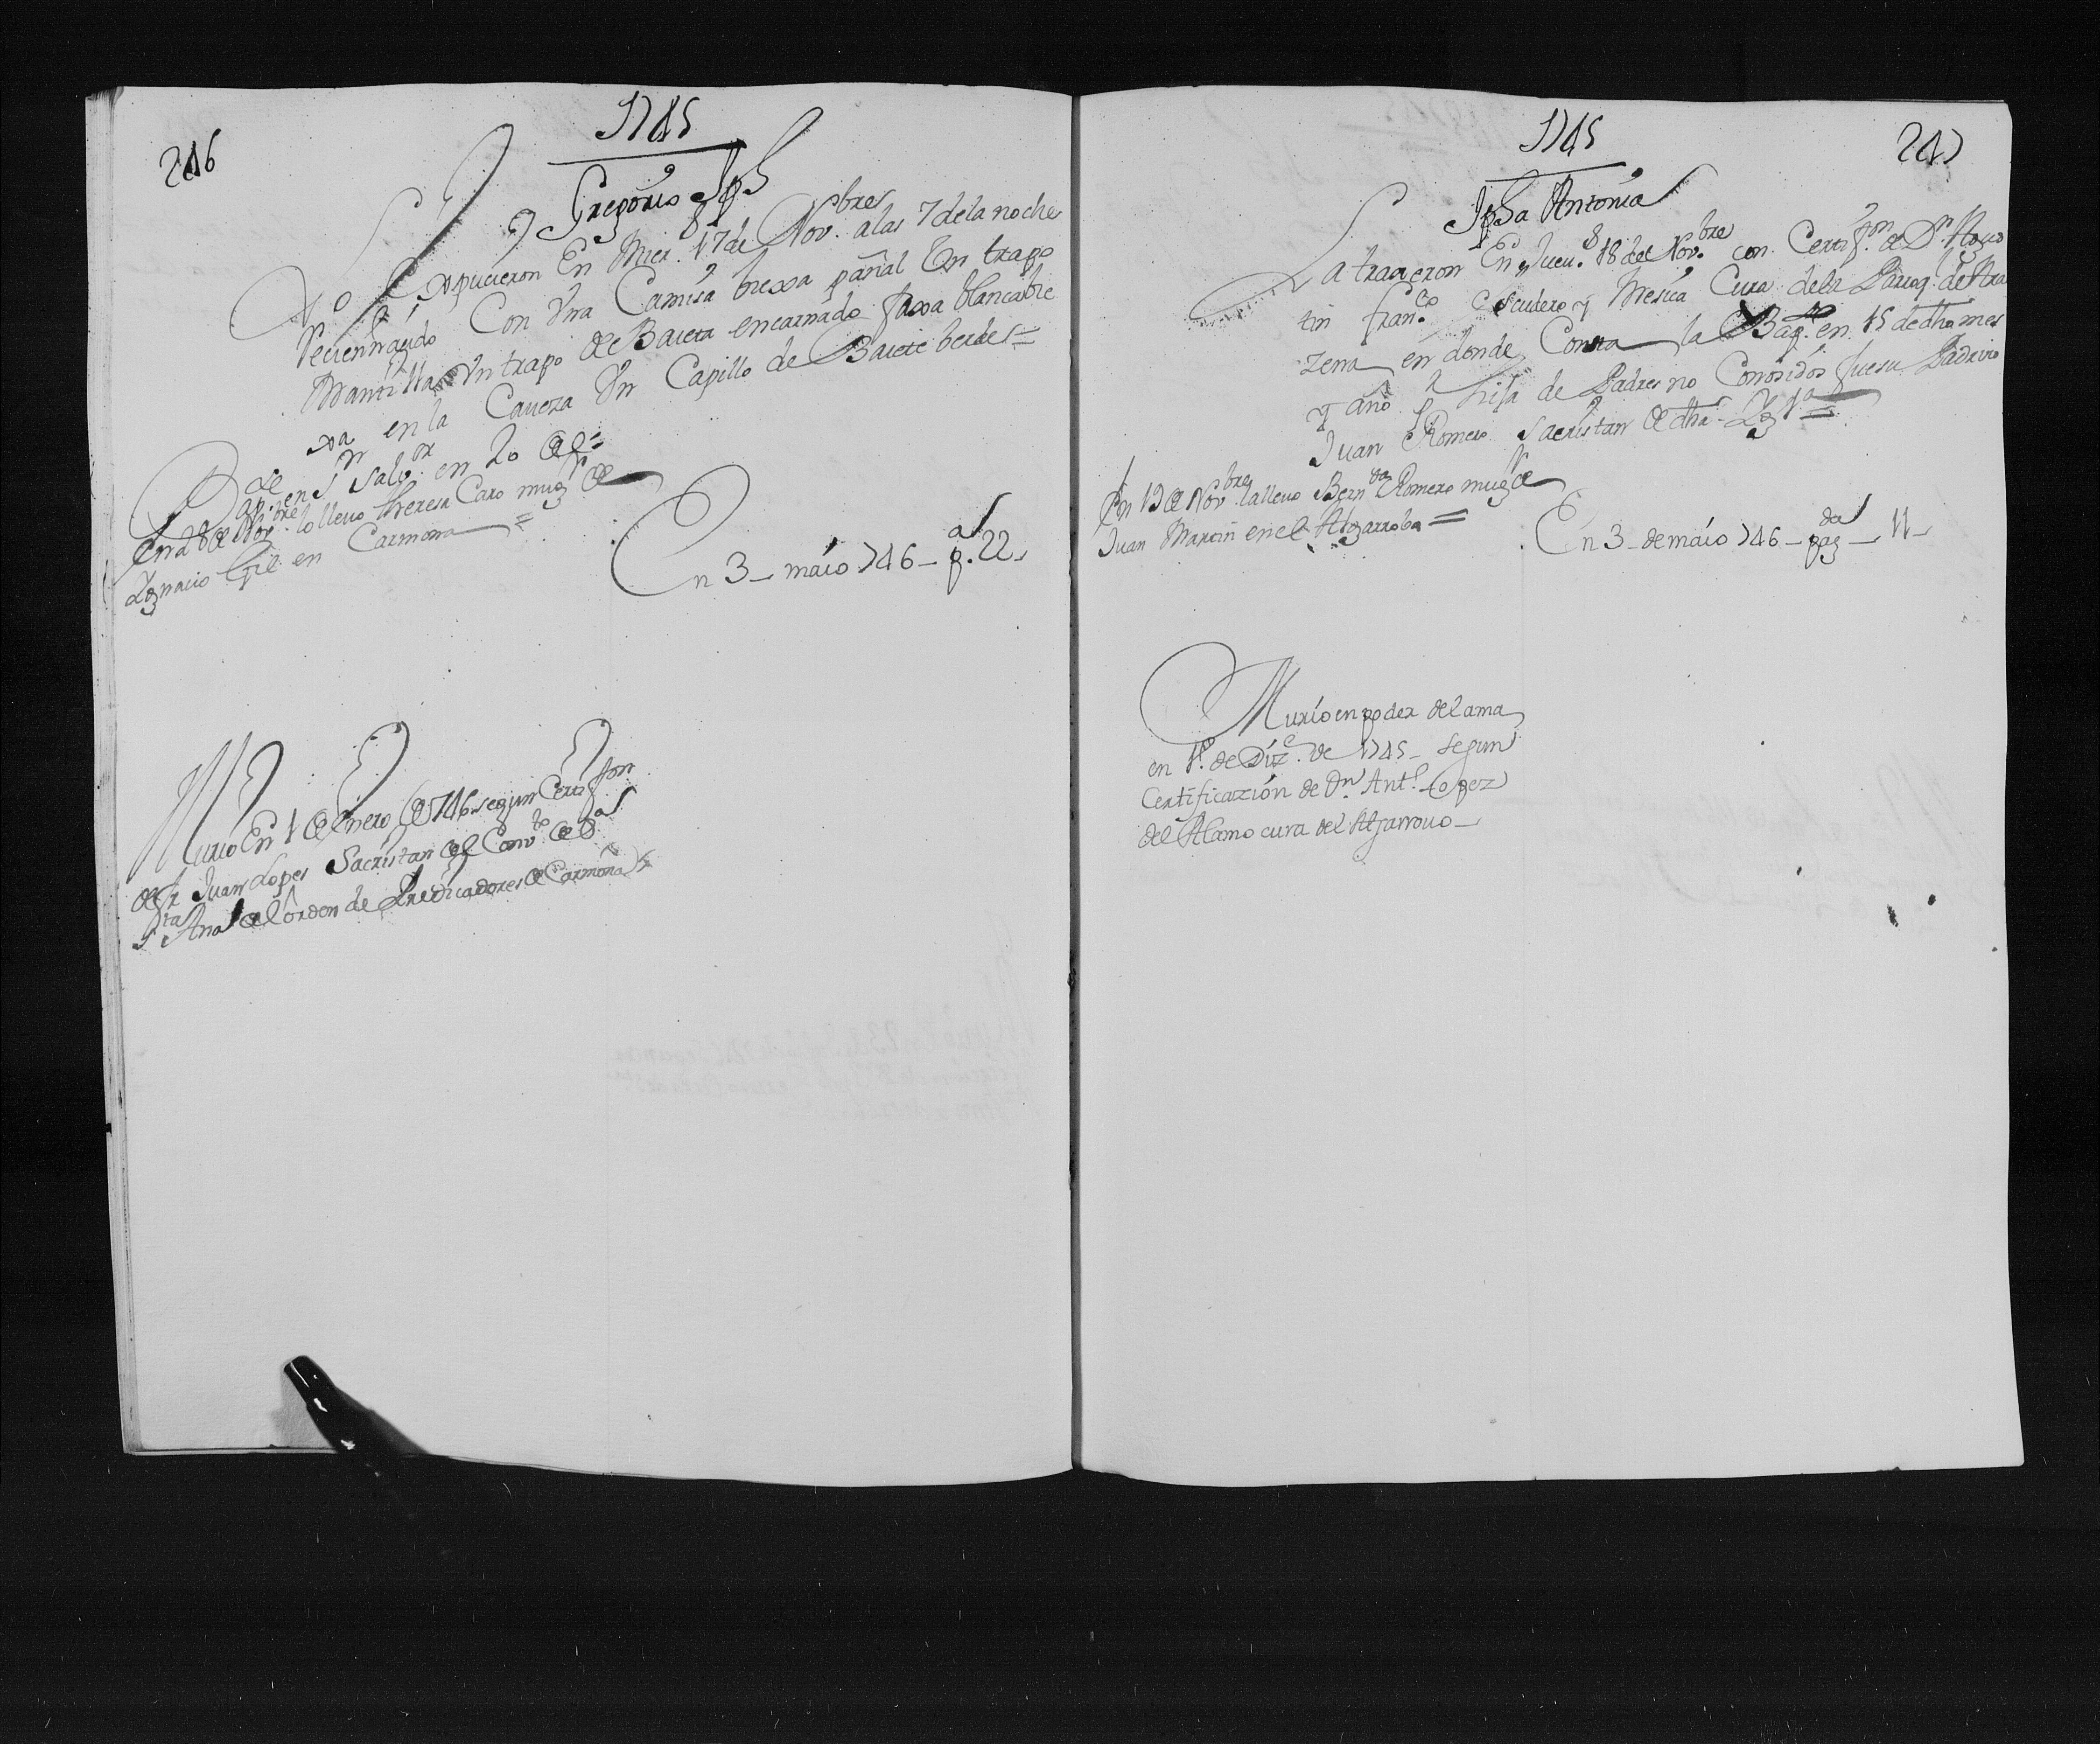 246
1745
Gregorio Jph
Lo expucieron En Mier. 17 de Nov.bre a las 7 de la noche
recien naçido Con Vna Camisa brexa pañal Un trapo
Mantilla Vn trapo de Baieta encarnado faxa blanca bie
xa en la Caveza Vn Capillo de Baiete berde =
Bap.se en Sn Salv.or en 20 de =
En 28 de Nov.bre lo llevo theresa Caro mugr de
Ygnacio Gil en Carmona =
En 3 - maio 746 - p.as 22 -
Murio En 1 de Enero de 746 segun Certif.on
de fr Juan Lopes Sacristan del Conv.to de Sa
Sta Ana del orden de Predicadores de Carmona
1745
247
Jpha Antonia
La trageron En Juev.s 18 del Nov.bre con Certif.on de Dn
tin Fran.co Escudero y Mesia Cura de la Parroq. de Ara
zena en donde Consta la Bap. en 15 de dho mes
y año hija de Padres no Conosidos fue su Padrino
Juan Romero Sacristan de dha Ygla =
En 19 de Nov.bre la llevo Bern.da Romero mugr de
Juan Martin en el Algarrobo =
En 3 - de maio 746 - pag.das - 11 -
Murio en poder del ama
en 1.º de Diz.e de 1745 - segun
Certificazión de Dn Ant.º Lopez
del Alamo cura del Algarrovo -